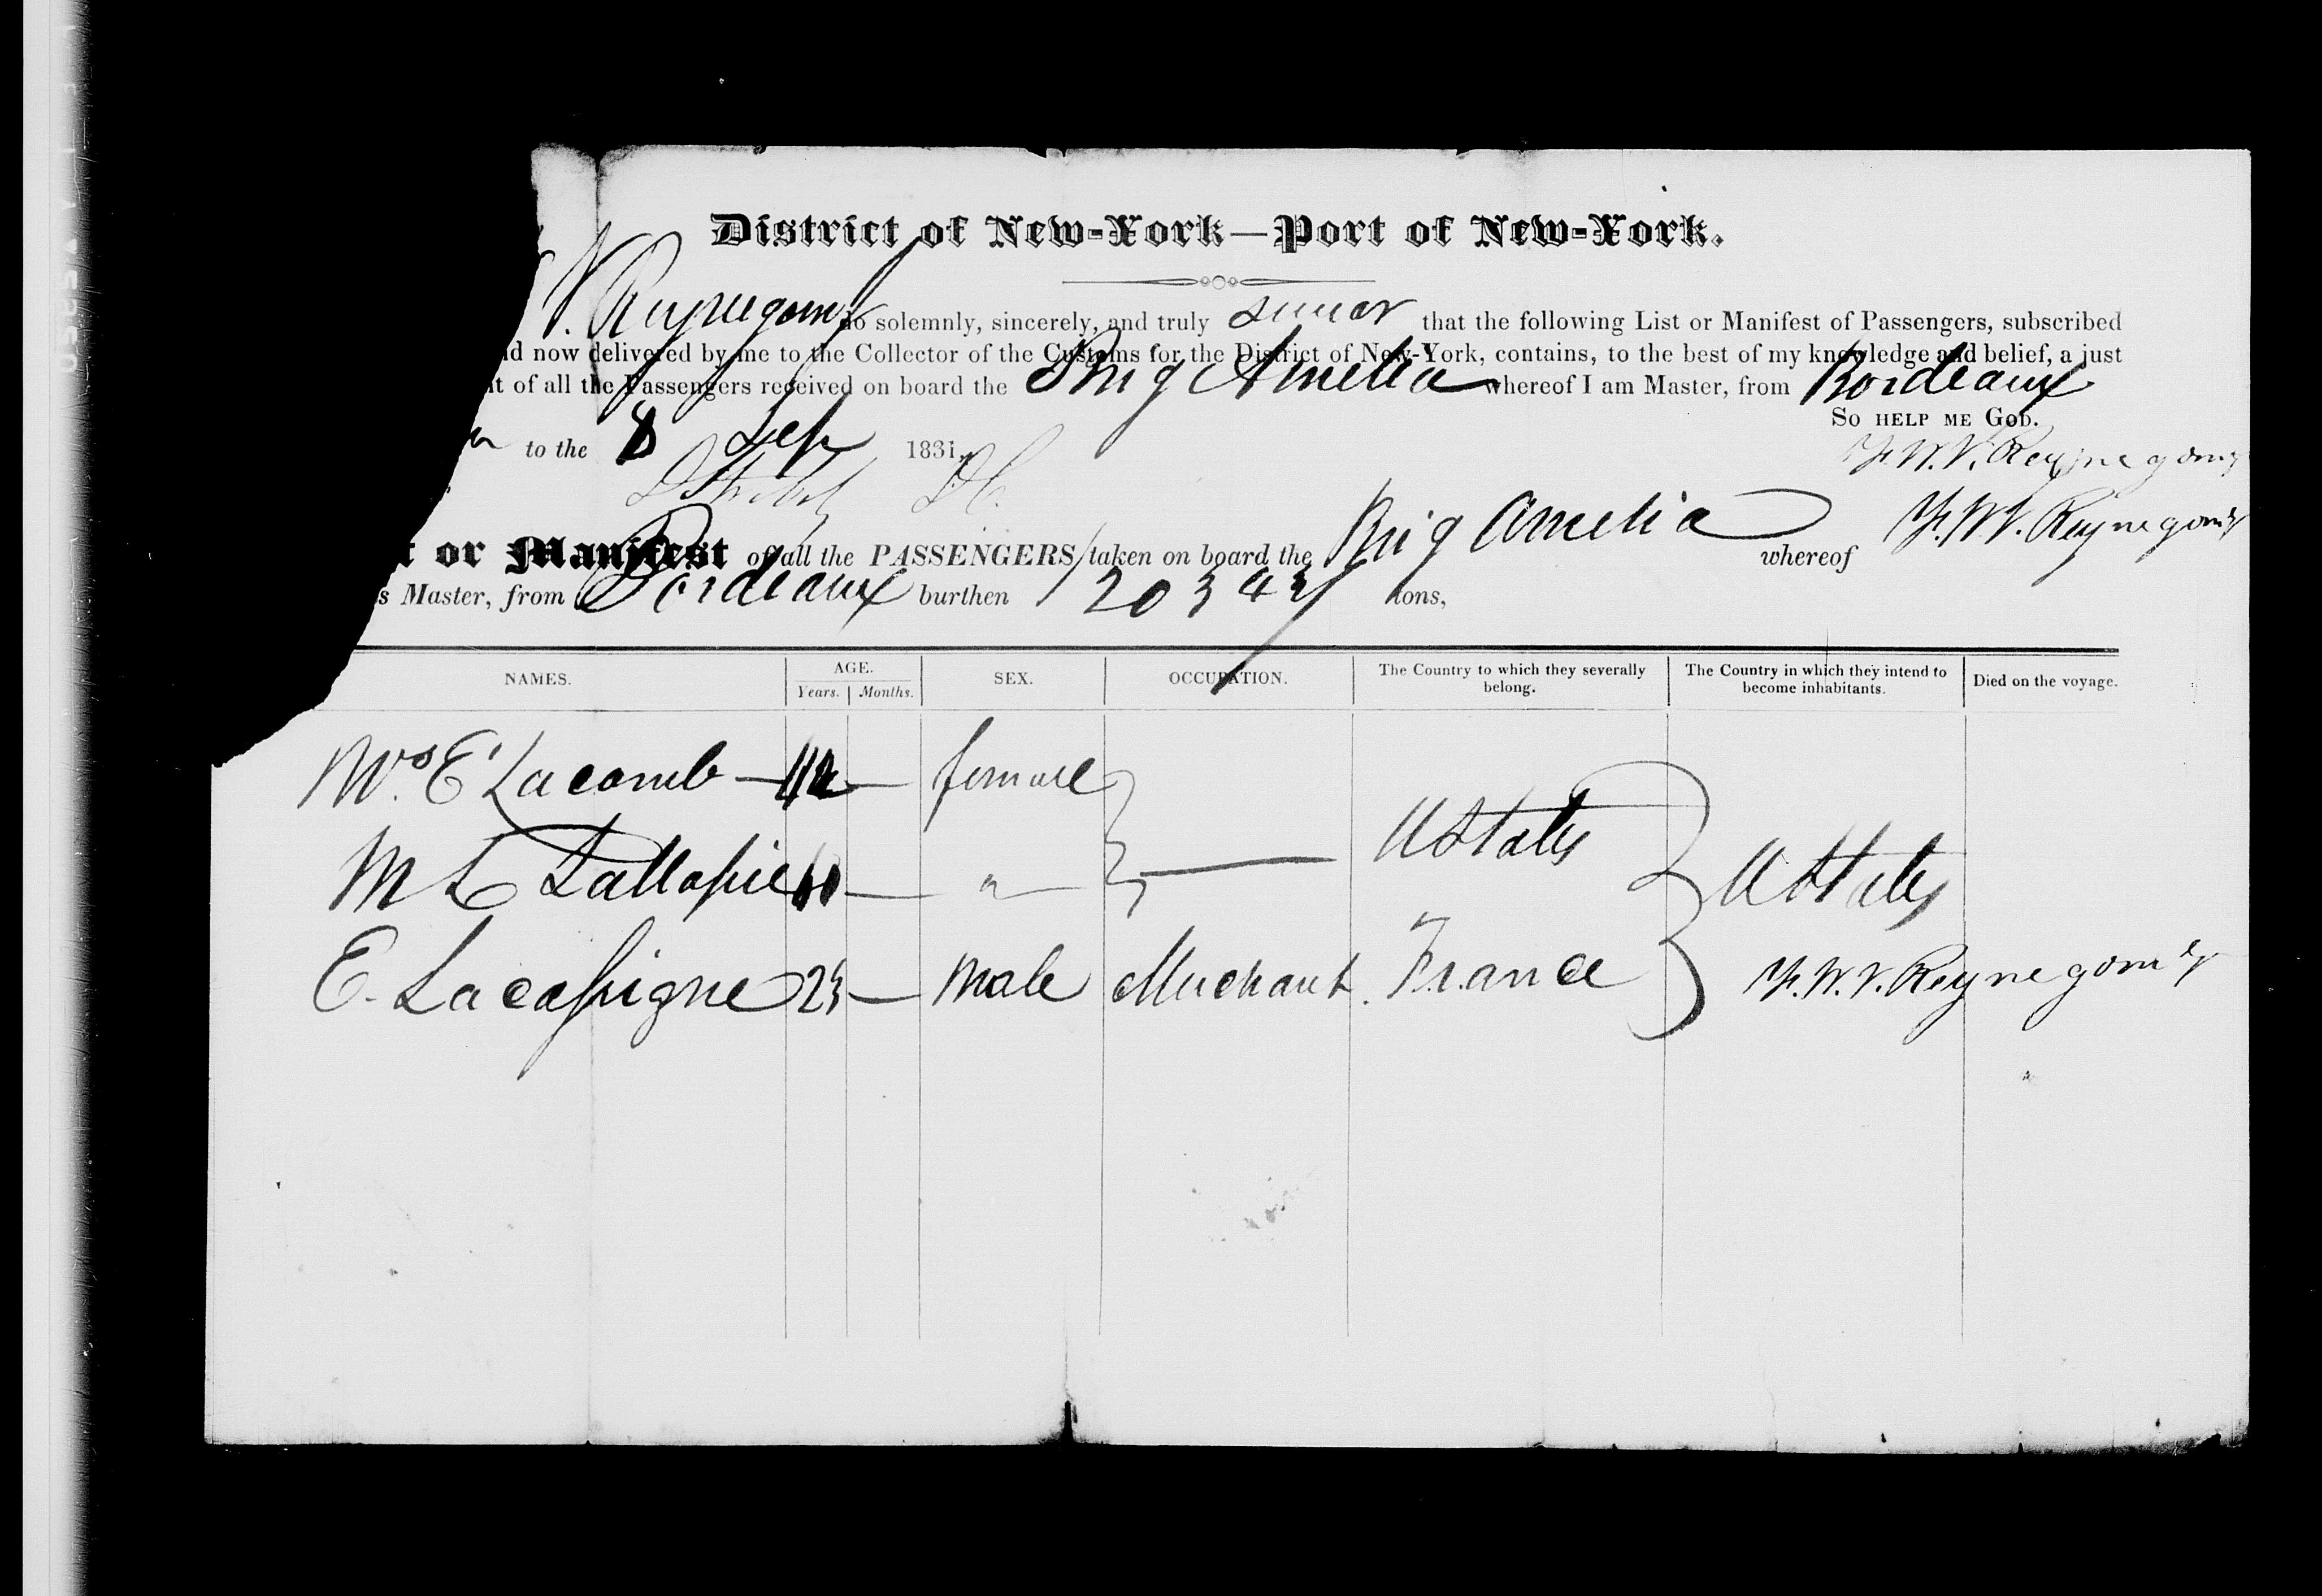 District of New-York—Port of New-York.
V. Reynegom do solemnly, sincerely, and truly swear that the following List or Manifest of Passengers, subscribed
now delivered by me to the Collector of the Customs for the District of New-York, contains, to the best of my knowledge and belief, a just
of all the Passengers received on board the Brig Amelia whereof I am Master, from Bordeaux
So help me God.
to the 8 Sep 1831
W. V. Reynegom
or Manifest of all the PASSENGERS taken on board the Brig Amelia whereof W. V. Reynegom
Master, from Bordeaux burthen 203 tons,
NAMES. AGE. Years. Months. SEX. OCCUPATION. The Country to which they severally belong. The Country in which they intend to become inhabitants. Died on the voyage.
Mrs. E Lacomb — 42 — female
M L 40 — " — U States U States
E. Lacassigne 23 — Male Merchant. France
W. V. Reynegom